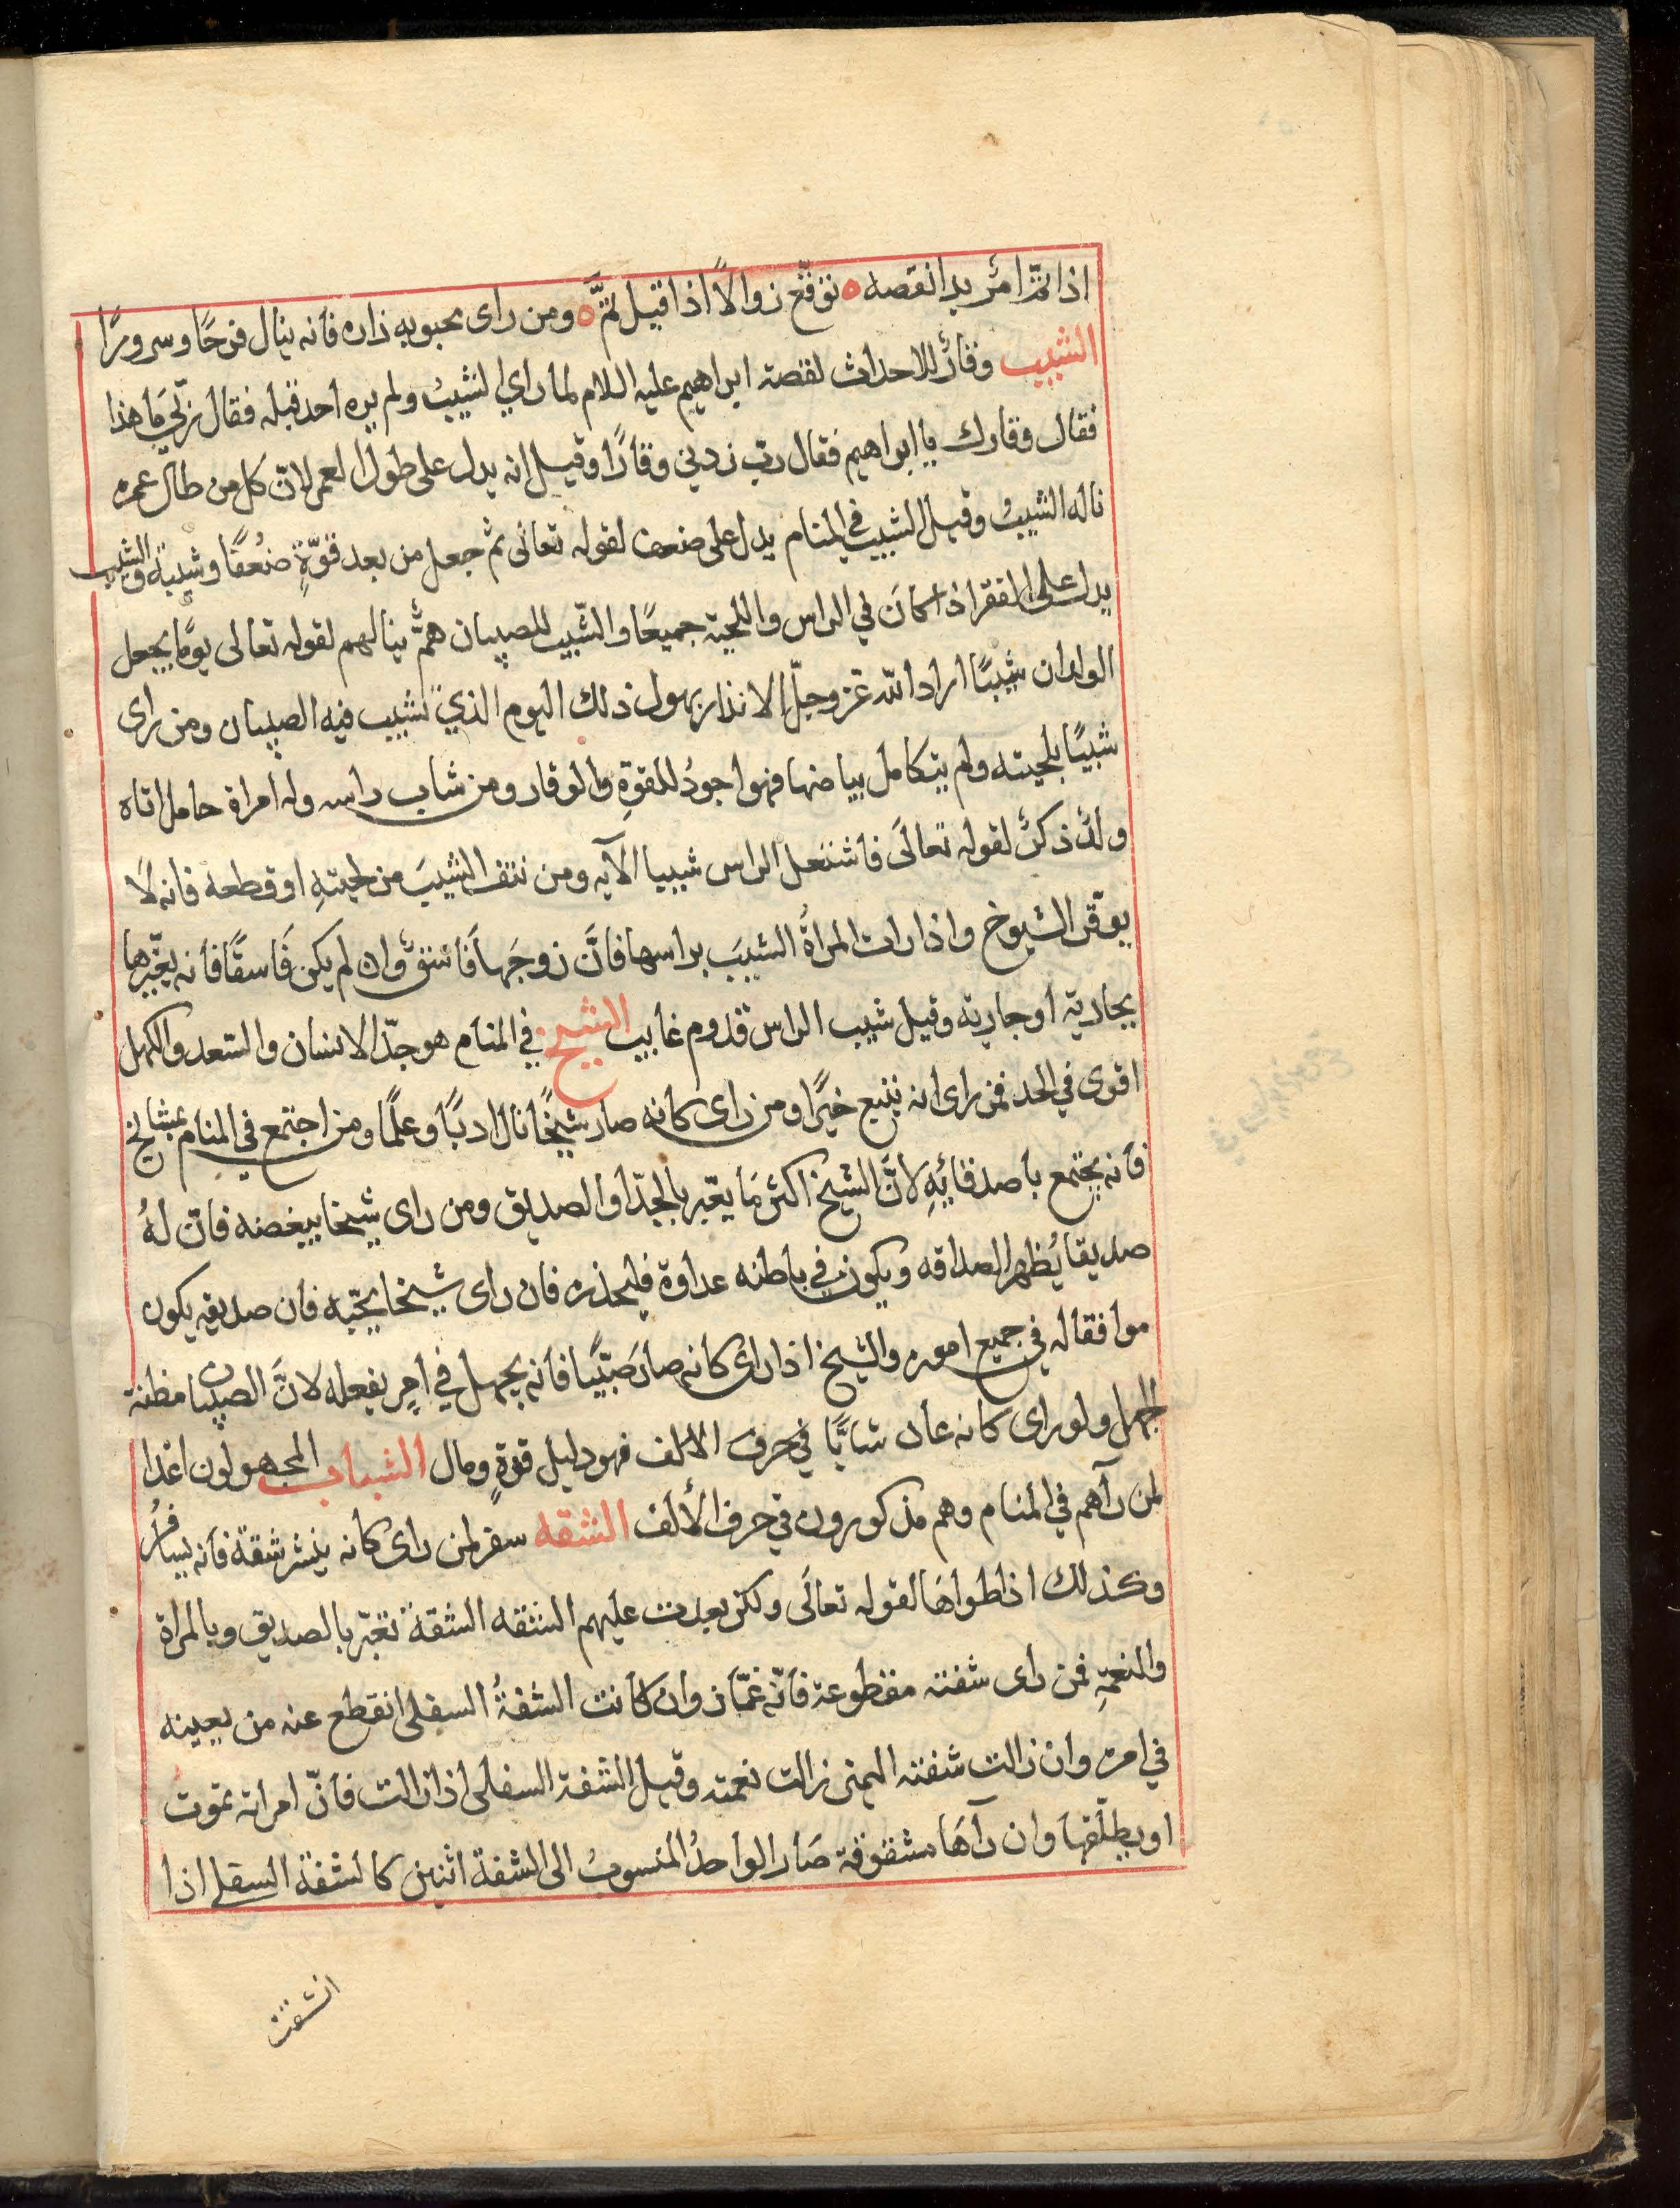 اذا تمّ امرٌ بدا نقصه ٥ توقّع زوالاً اذا قيل تمّ ٥ ومن راى محبوبه زاره فانه ينال فرحًا وسرورًا
الشيب وقارٌ للاحداث لقصة ابراهيم عليه السلام لما راي الشيبُ ولم يره احد قبله فقال ربّي مَا هذا
فقال وقارك يا ابراهيم فقال ربّ زدني وقارًا وقيل انه يدل على طول العمر لانّ كل من طال عمره
ناله الشيبُ وقيل الشيب في المنام يدل على ضعف لقوله تعالى ثم جعل من بعد قوّةٍ ضعْفًا وشيبةً والشيب
يدل على الفقر اذا كانَ في الراس واللحية جميعًا والشّيب للصبيان همٌّ ينالهم لقوله تعالى يومًا يجعل
الولدان شيبًا اراد الله عز وجلّ الانذار بهول ذلك اليوم الذي تشيب فيه الصبيان ومن راى
شيبًا بلحيته ولم يتكامل بياضها فهو اجودُ للقوةِ والوقار ومن شاب راسه وله امراة حامل اتاه
ولدٌ ذكرٌ لقوله تعالَى فاشتعل الراس شيبا الآيه ومن نتف الشيبَ من لحيتهِ او قطعه فانه لا
يوقّر الشيوخ واذا رات المراةُ الشيبَ براسها فانَّ زوجَها فَاسقٌ وان لم يكن فَاسقًا فأنه يغيّرها
بجارية او جارية وقيل شيب الراس قدوم غايب الشيخ في المنام هو جدّ الانسان والسعد والكهل
اقوى في الحد فمن راى انه يتبع خيرًا ومن راى كانه صار شيخًا نال ادبًا وعلمًا ومن اجتمع في المنام بمشايخ
فأنه يجتمع باصدقائِهِ لانَّ الشيخ اكثر مَا يعبّر بالجدّ او الصديق ومن راى شيخا يبغضه فانّ لهُ
صديقا يُظهر الصداقه ويكون في باطنه عداوة فليحذره فان راى شيخا يحبّه فأن صديقه يكون
موافقا له في جميع اموره والشيخ اذا راى كانه صارَ صَبّيًا فأنه يجهل في امرٍ يفعله لانَّ الصبيان مظنة
الجهل ولو راى كانه عاد شابًّا في حرف الالف فهو دليل قوةٍ ومال الشباب المجهولون اعدا
لمن رآهم في المنام وهم مذكورون في حرف الألف الشقه سفر لمن راى كانه ينشر شقة فأنه يسافرُ
وكذلك اذا طواهَا لقوله تعالَى ولكن بعدت عليهم الشقه الشقة تعبّر بالصديق وبالمراة
والنعمةِ فمن راى شفته مقطوعة فأنّه غمّاز وان كانت الشفةُ السفلى انقطع عنه من يعينه
في امره وان زالت شفته اليمنى زالت نعمته وقيل الشفة السفلى اذا زالت فأنّ امراته تموت
او يطلّقها وان رآهَا مشقوقة صَار الواحدُ المنسوبُ الى الشفة اثنين كالشفة السفلى اذا
انشقت